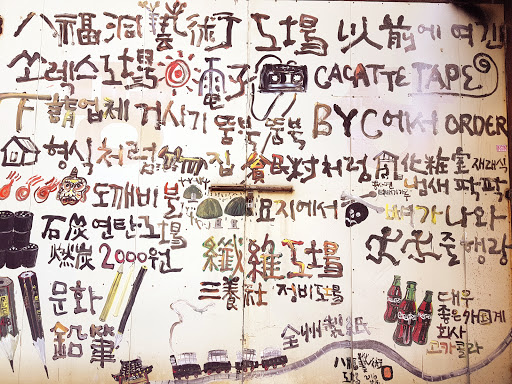 八福洞藝術工場 以前에 여긴
쏘렉스工場 電子 CACATTE TAPE
下請업체 거시기 뚬벅뚬벅 BYC에서 ORDER
형식처럼 집 貧民村처럼 同化粧室 재래식
냄새 팍팍
도깨비불 묘지에서 뼈가 나와
石炭연탄工場 줄행랑
燃炭 2000원 纖維工場
三養社 정비工場
문화 대우
鉛筆 좋은카페계
회사
全州製紙 코카콜라
八福藝術
工場